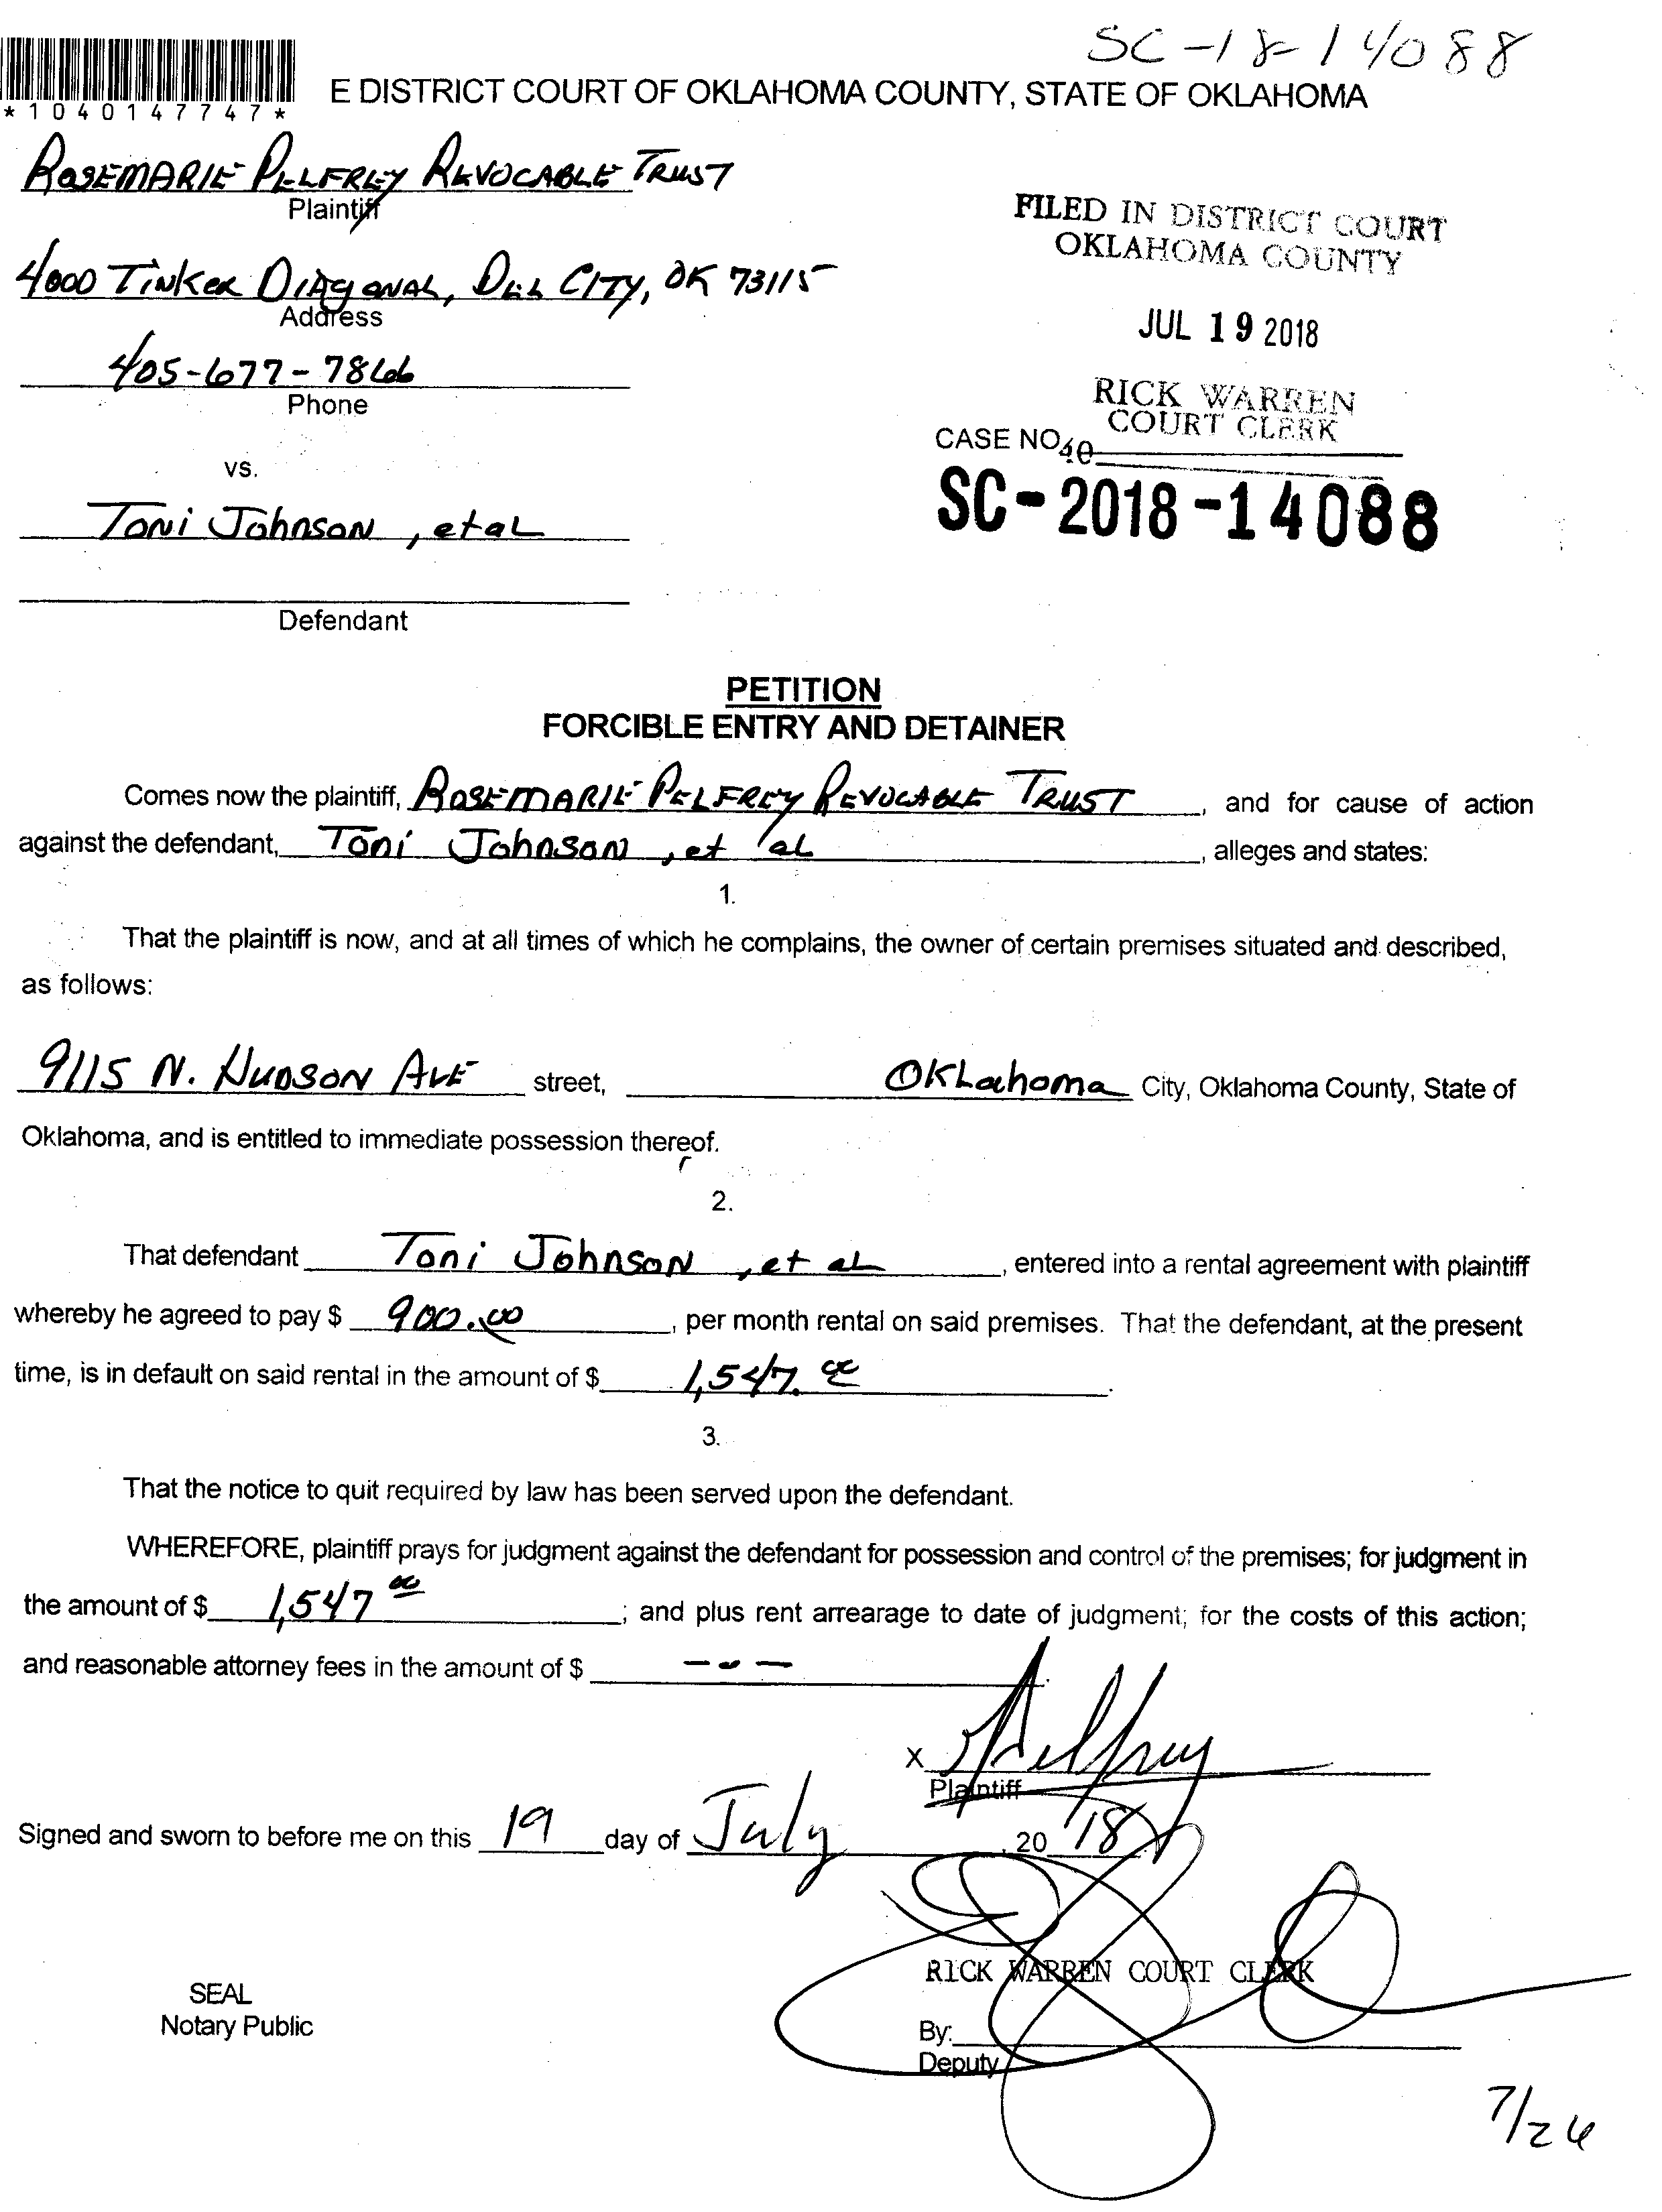 SC-18-14088
*1040147747*
E DISTRICT COURT OF OKLAHOMA COUNTY, STATE OF OKLAHOMA
ROSEMARIE PELFREY REVOCABLE TRUST
Plaintiff
4000 Tinker DIAGONAL, DEL CITY, OK 73115
Address
405-677-7866
Phone
vs.
Toni Johnson, et al
Defendant
FILED IN DISTRICT COURT
OKLAHOMA COUNTY
JUL 19 2018
RICK WARREN
COURT CLERK
CASE NO. 40
SC-2018-14088
PETITION
FORCIBLE ENTRY AND DETAINER
Comes now the plaintiff, ROSEMARIE PELFREY REVOCABLE TRUST, and for cause of action
against the defendant, Toni Johnson, et al, alleges and states:
1.
That the plaintiff is now, and at all times of which he complains, the owner of certain premises situated and described,
as follows:
9115 N. HUDSON AVE street, Oklahoma City, Oklahoma County, State of
Oklahoma, and is entitled to immediate possession thereof.
2.
That defendant Toni Johnson, et al, entered into a rental agreement with plaintiff
whereby he agreed to pay $ 900.00, per month rental on said premises. That the defendant, at the present
time, is in default on said rental in the amount of $ 1,547.00.
3.
That the notice to quit required by law has been served upon the defendant.
WHEREFORE, plaintiff prays for judgment against the defendant for possession and control of the premises; for judgment in
the amount of $ 1,547 00; and plus rent arrearage to date of judgment; for the costs of this action;
and reasonable attorney fees in the amount of $ - - -.
X Pelfrey
Plaintiff
Signed and sworn to before me on this 19 day of July, 20 18
RICK WARREN COURT CLERK
SEAL
Notary Public
By:
Deputy
7/26